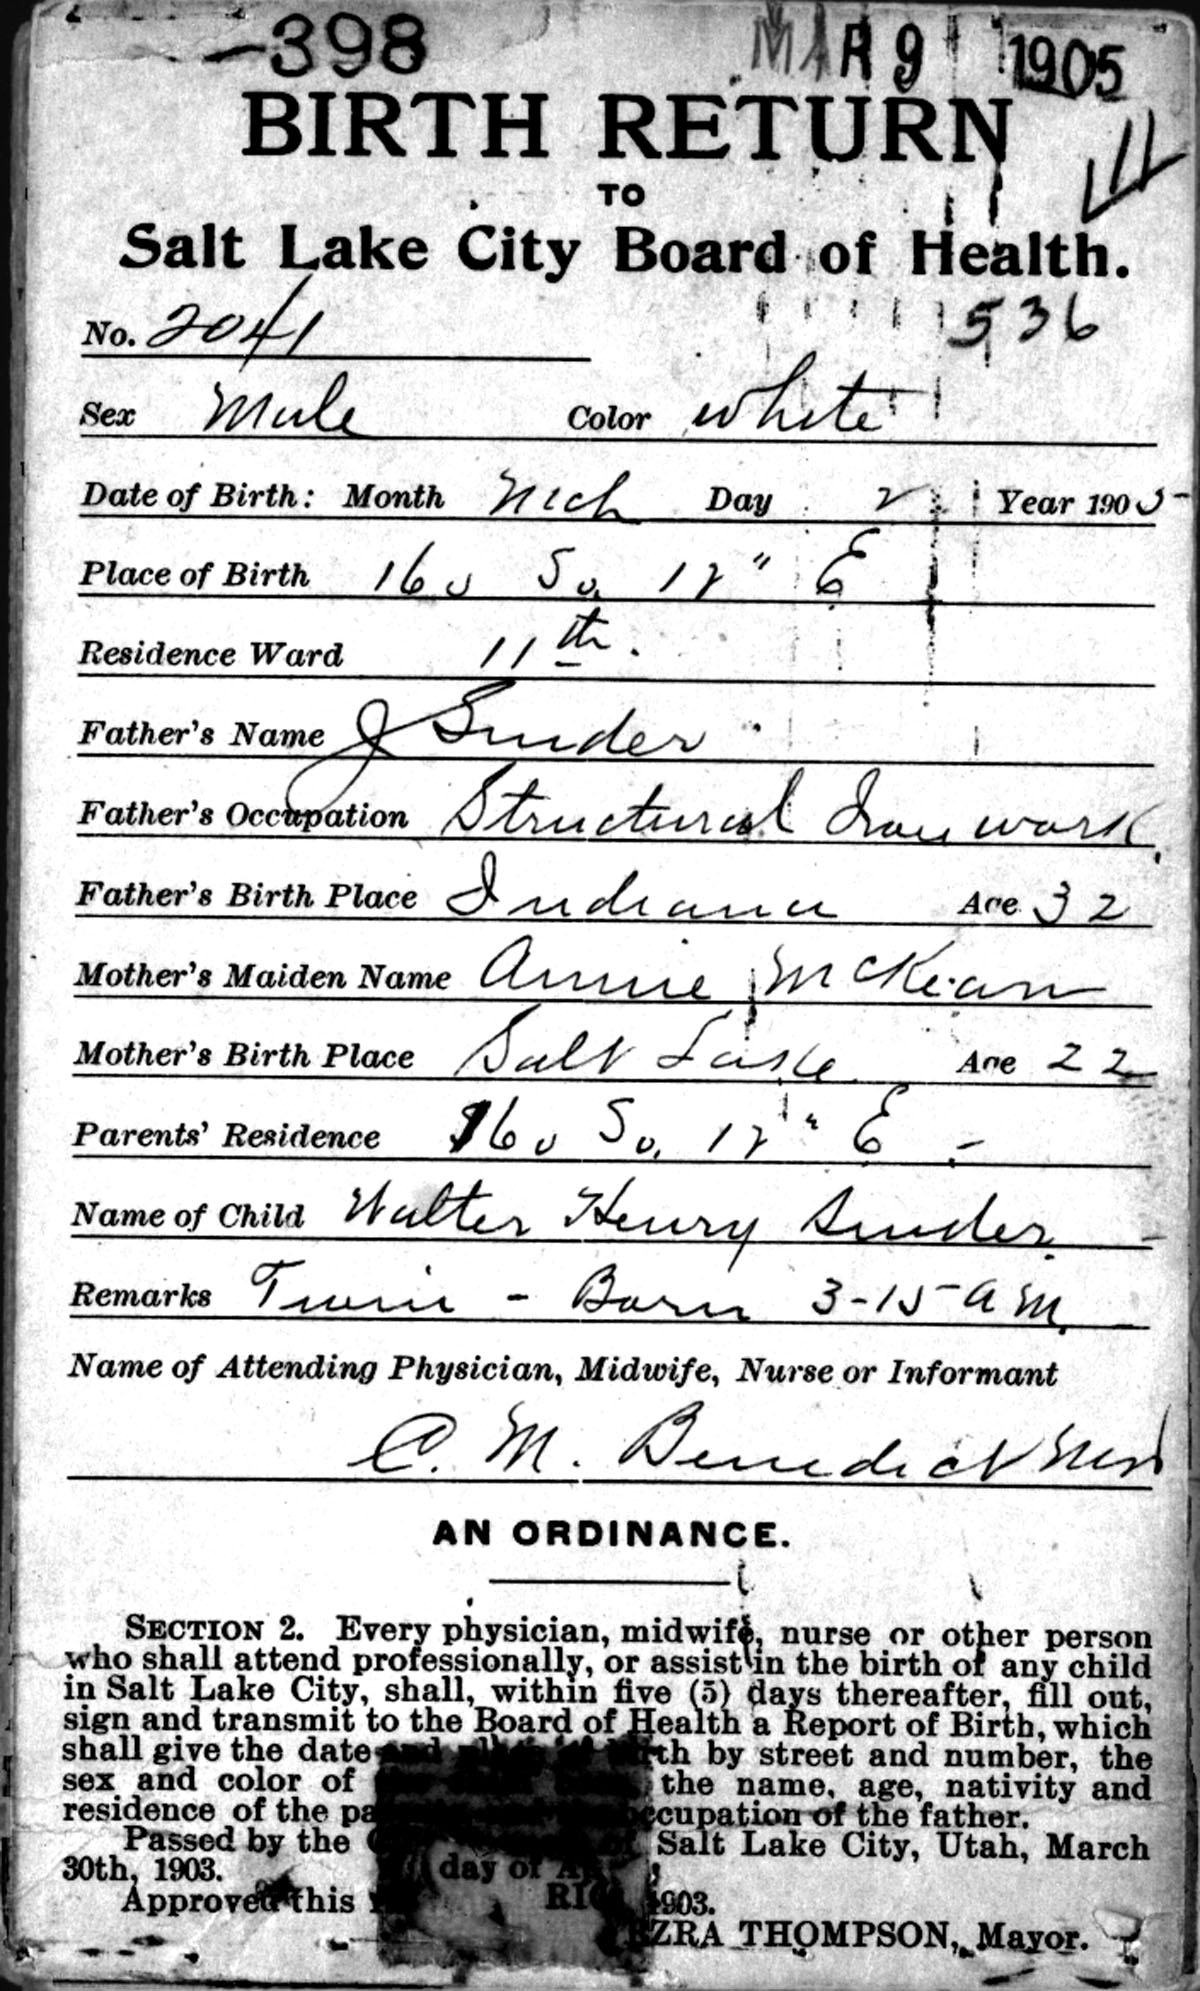 398 MAR 9 1905
BIRTH RETURN
TO
Salt Lake City Board of Health.
No. 2041 536
Sex Male Color white
Date of Birth: Month Mch Day 2 Year 1905
Place of Birth 160 So. 12" E
Residence Ward 11th.
Father's Name J Snider
Father's Occupation Structural Iron work.
Father's Birth Place Indiana Age 32
Mother's Maiden Name Annie McKean
Mother's Birth Place Salt Lake Age 22
Parents' Residence 160 So. 12" E -
Name of Child Walter Henry Snider
Remarks Twin - Born 3-15 a M.
Name of Attending Physician, Midwife, Nurse or Informant
C. M. Benedict
AN ORDINANCE.
SECTION 2. Every physician, midwife, nurse or other person
who shall attend professionally, or assist in the birth of any child
in Salt Lake City, shall, within five (5) days thereafter, fill out,
sign and transmit to the Board of Health a Report of Birth, which
shall give the date and by street and number, the
sex and color of the name, age, nativity and
residence of the occupation of the father.
Passed by the Salt Lake City, Utah, March
30th, 1903.
Approved this day of 1903.
EZRA THOMPSON, Mayor.